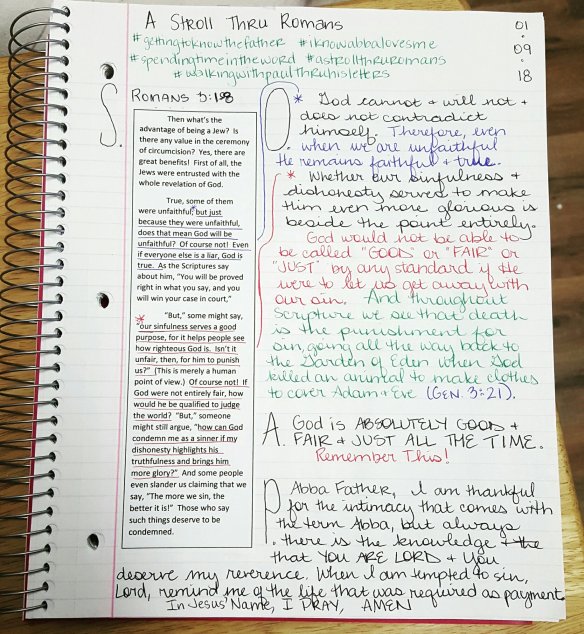 A Stroll Thru Romans
#gettingtoknowthefather #iknowabbalovesme
#spendingtimeintheword #astrollthruromans
#walkingwithpaulthruhisletters
01
•
09
•
18
S.
Romans 3:1-8
Then what's the
advantage of being a Jew? Is
there any value in the ceremony
of circumcision? Yes, there are
great benefits! First of all, the
Jews were entrusted with the
whole revelation of God.
True, some of them
were unfaithful;* but just
because they were unfaithful,
does that mean God will be
unfaithful? Of course not! Even
if everyone else is a liar, God is
true. As the Scriptures say
about him, "You will be proved
right in what you say, and you
will win your case in court,"
*
"But," some might say,
"our sinfulness serves a good
purpose, for it helps people see
how righteous God is. Isn't it
unfair, then, for him to punish
us?" (This is merely a human
point of view.) Of course not! If
God were not entirely fair, how
would he be qualified to judge
the world? "But," someone
might still argue, "how can God
condemn me as a sinner if my
dishonesty highlights his
truthfulness and brings him
more glory?" And some people
even slander us claiming that we
say, "The more we sin, the
better it is!" Those who say
such things deserve to be
condemned.
O.
* God cannot + will not +
does not contradict
himself. Therefore, even
when we are unfaithful
He remains faithful + true.
* Whether our sinfulness +
dishonesty serves to make
Him even more glorious is
beside the point entirely.
God would not be able to
be called "GOOD" or "FAIR" or
"JUST" by any standard if He
were to let us get away with
our sin. And throughout
Scripture we see that death
is the punishment for
sin, going all the way back to
the Garden of Eden when God
killed an animal to make clothes
to cover Adam + Eve (GEN. 3:21).
A. God is ABSOLUTELY GOOD +
FAIR + JUST ALL THE TIME.
Remember This!
P. Abba Father, I am thankful
for the intimacy that comes with
the term Abba, but always
there is the knowledge + the
that YOU ARE LORD + You
deserve my reverence. When I am tempted to sin,
Lord, remind me of the life that was required as payment.
In Jesus' Name, I PRAY, AMEN